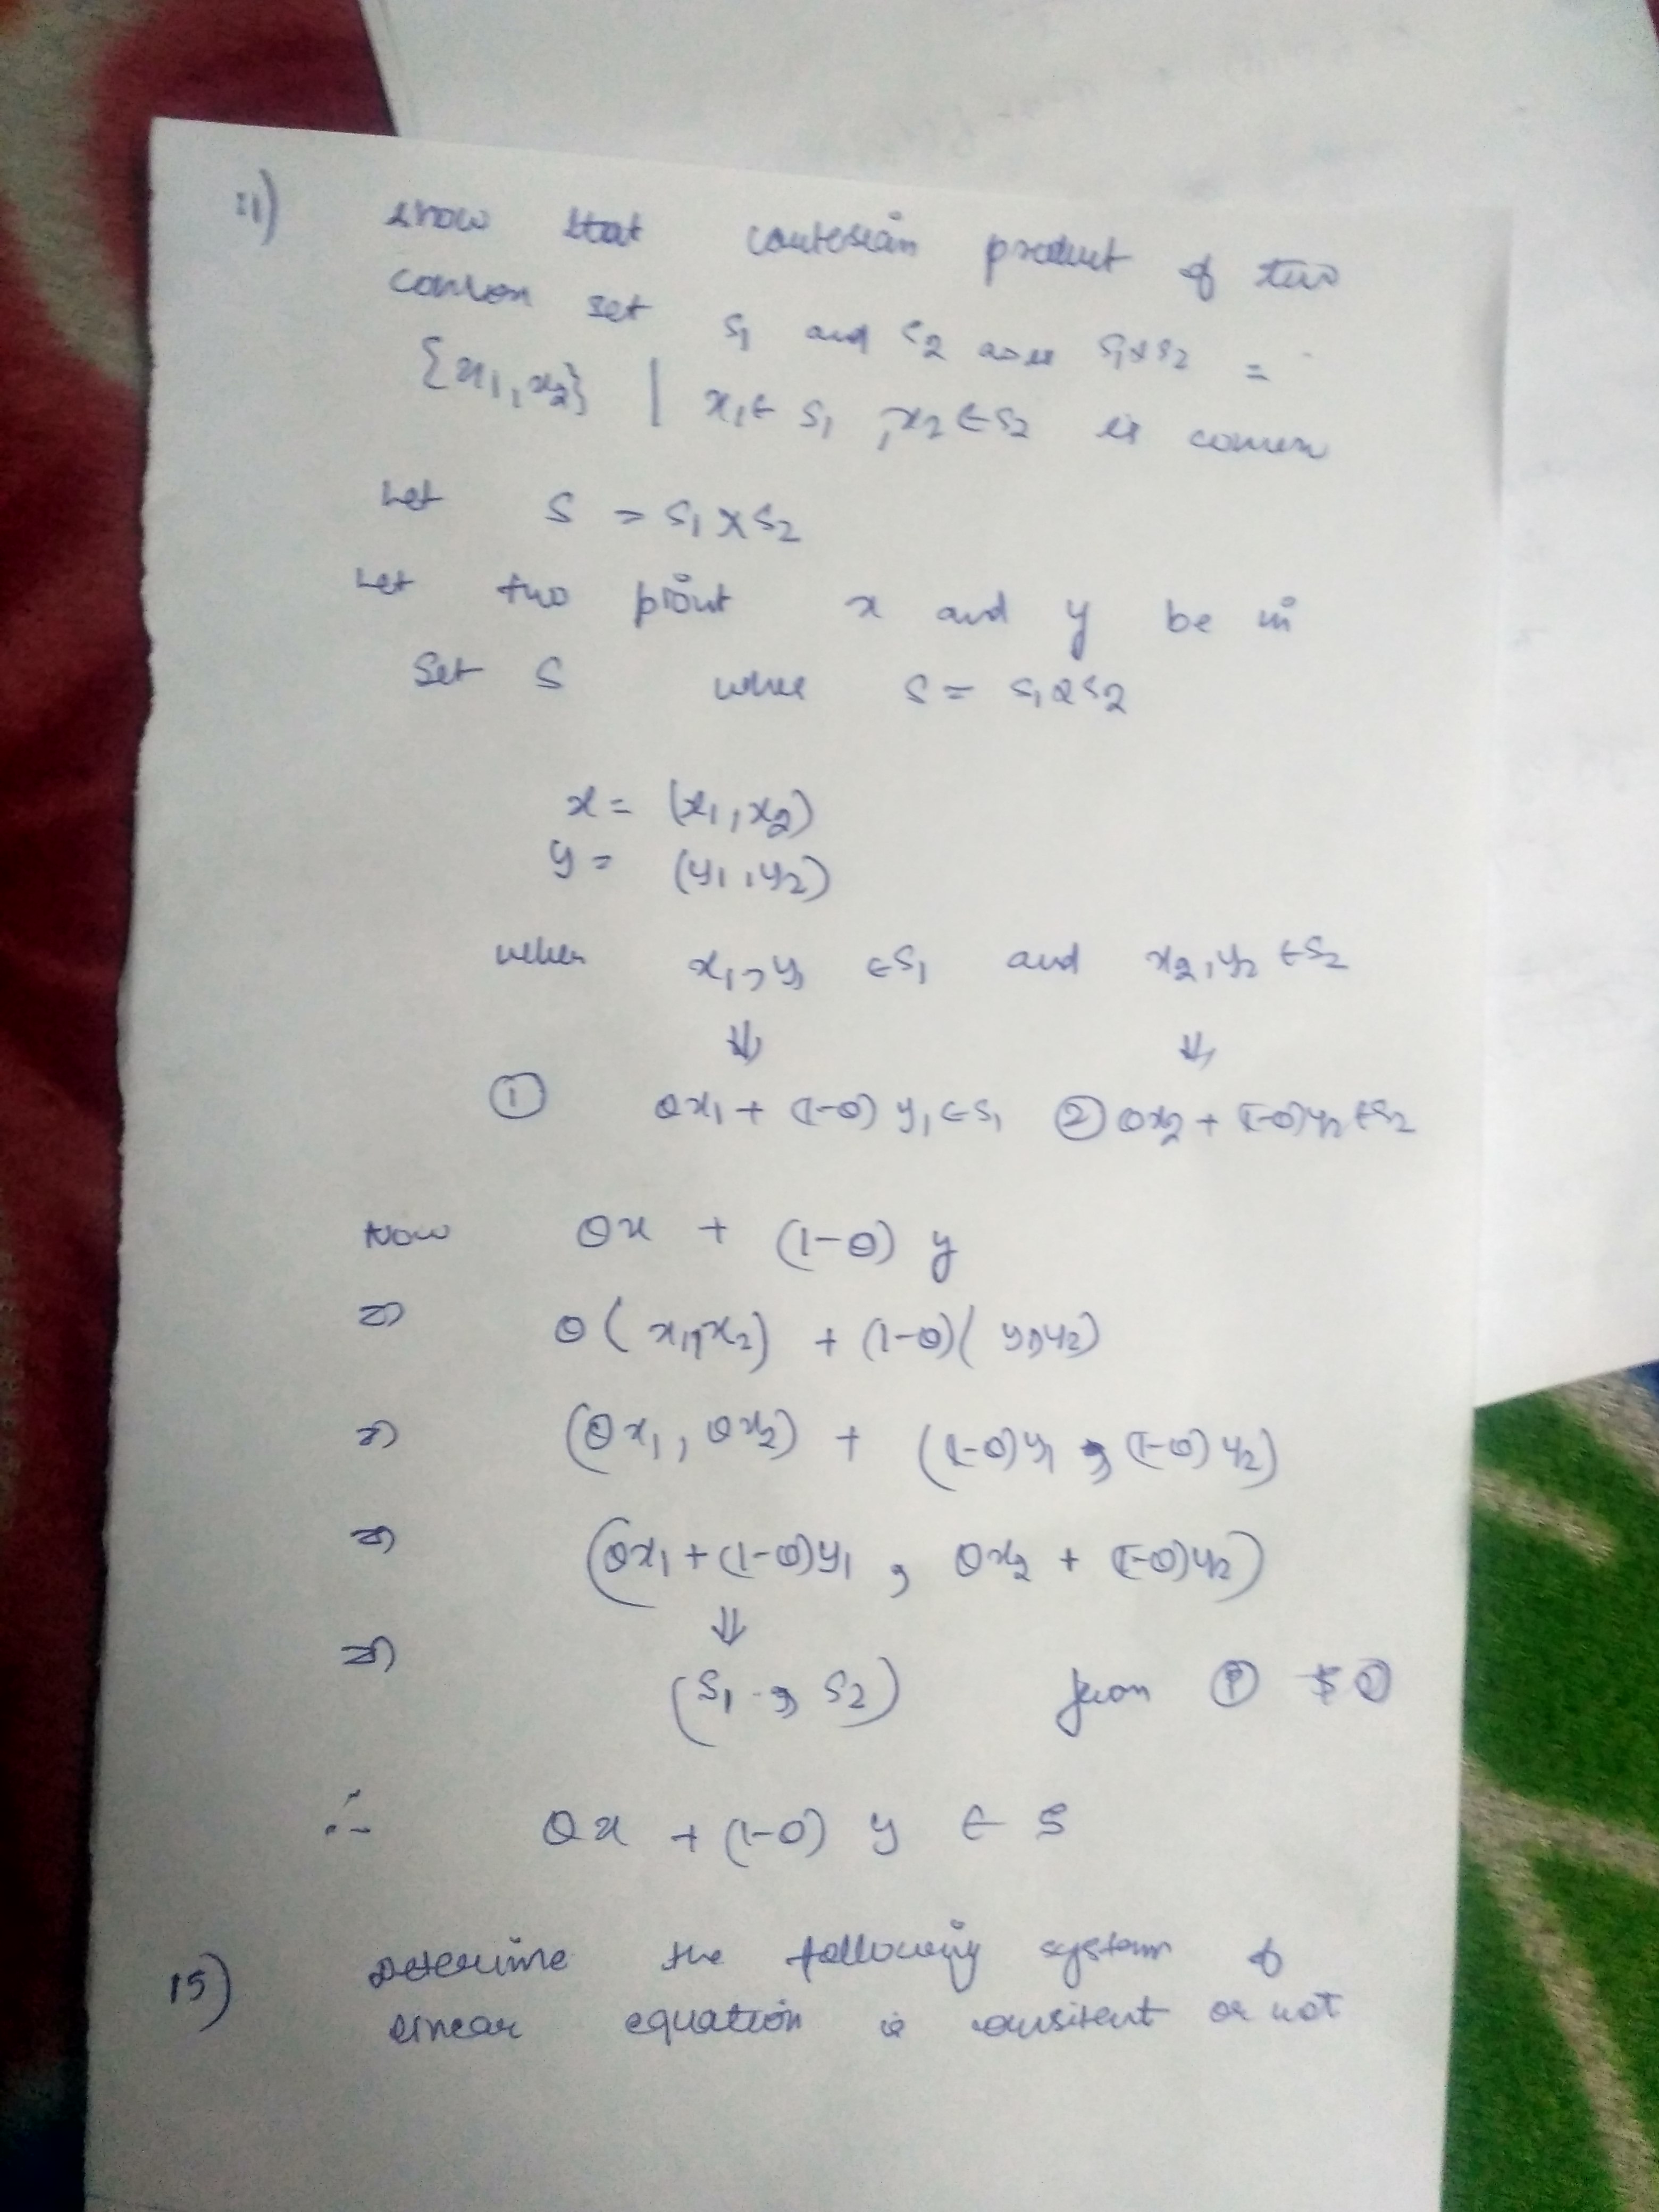 11) show that cartesian product of two
convex set S1 and S2 S1xS2 =
{x1, x2} | x1 ∈ S1 , x2 ∈ S2 is convex
Let S = S1 X S2
Let two point x and y be in
Set S where S = S1 x S2
x = (x1, x2)
y = (y1, y2)
when x1, y1 ∈ S1 and x2, y2 ∈ S2
⇓ ⇓
① θx1 + (1-θ) y1 ∈ S1 ② θx2 + (1-θ)y2 ∈ S2
Now θx + (1-θ) y
⇒ θ( x1, x2) + (1-θ)( y1, y2)
⇒ (θx1, θx2) + ((1-θ)y1 , (1-θ) y2)
⇒ (θx1 + (1-θ)y1 , θx2 + (1-θ)y2)
⇓
⇒ (S1 , S2) from ① & ②
∴ θx + (1-θ) y ∈ S
15) Determine the following system of
linear equation is consistent or not